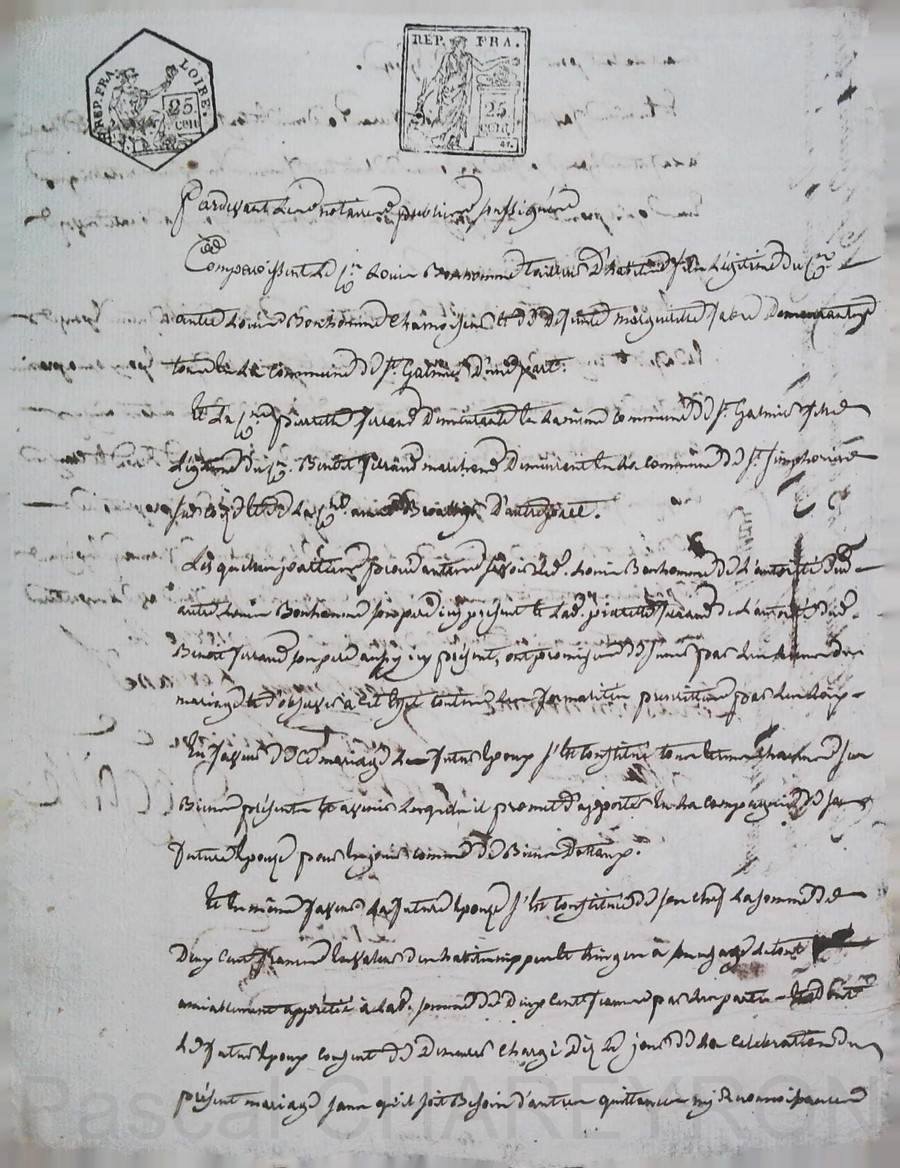 REP. FRA. LOIRE.
25 CENT
REP. FRA.
25 CENT
Pardevant les notaires publics soussignés
Comparoissent le Sr. Louis Bonhomme tailleur d'habits fils légitime du Sr.
autre Louis Bonhomme chamoiseur et de defunte Margueritte fabre demeurants
tous en la commune de St. Galmier d'une part.
Et la Pierrette ferrand demeurante en la même commune de St. Galmier fille
légitime du Sr. Benoit ferrand marchand demeurant en la commune de St. Simphorien
et de d'autre part.
Lesquelles parties procedantes sçavoir led. Louis Bonhomme de l'autorité dud.
autre Louis Bonhomme son père icy présent et lad. pierrette ferrand de l'autorité dud.
Benoit ferrand son père aussy icy présent, ont promis de s'unir par les liens du
mariage et d'observer à cet effet toutes les formalités prescrittes par les loix.
En faveur de ce mariage le futur époux s'est constitué tous et uns chacuns ses
Biens présents et avenir lesquels il promet d'apporter en la compagnie de sa
future épouse pour en jouir comme de Biens dottaux.
Et en même faveur la future épouse s'est constituée de son chef la somme de
Deux cent francs en valeur des habits nippes et linges à son usage le tout
amiablement apprétié à lad. somme de Deux cent francs par les parties
Le futur époux consent de Demeurer chargé Dez le jour de la célébration du
présent mariage sans qu'il soit Besoin d'autres quittances ny Reconnoissances
Pascal CHAREYRON